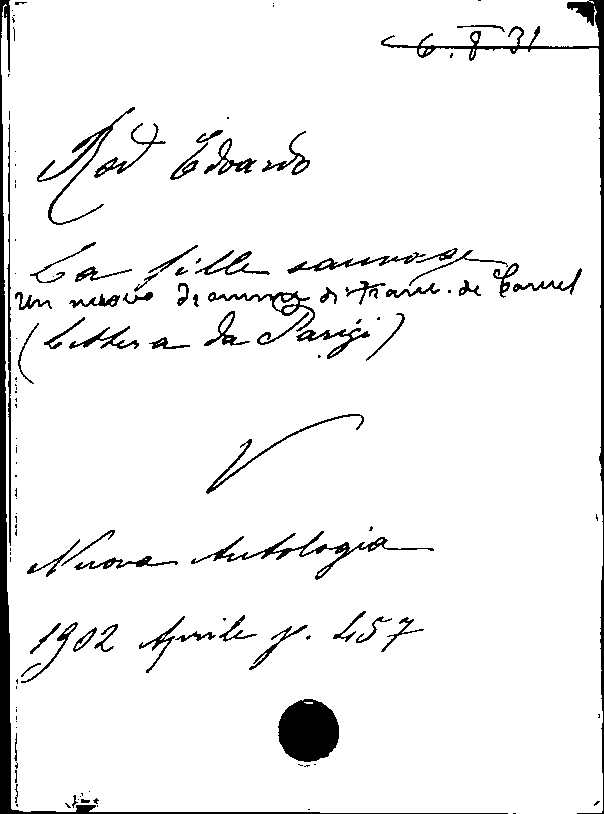 6.8.31
Rod Edoardo
La fille sauvage
Un nuovo dramma di Franc. de Curel
(lettera da Parigi)
V
Nuova Antologia
1902 Aprile p. 457